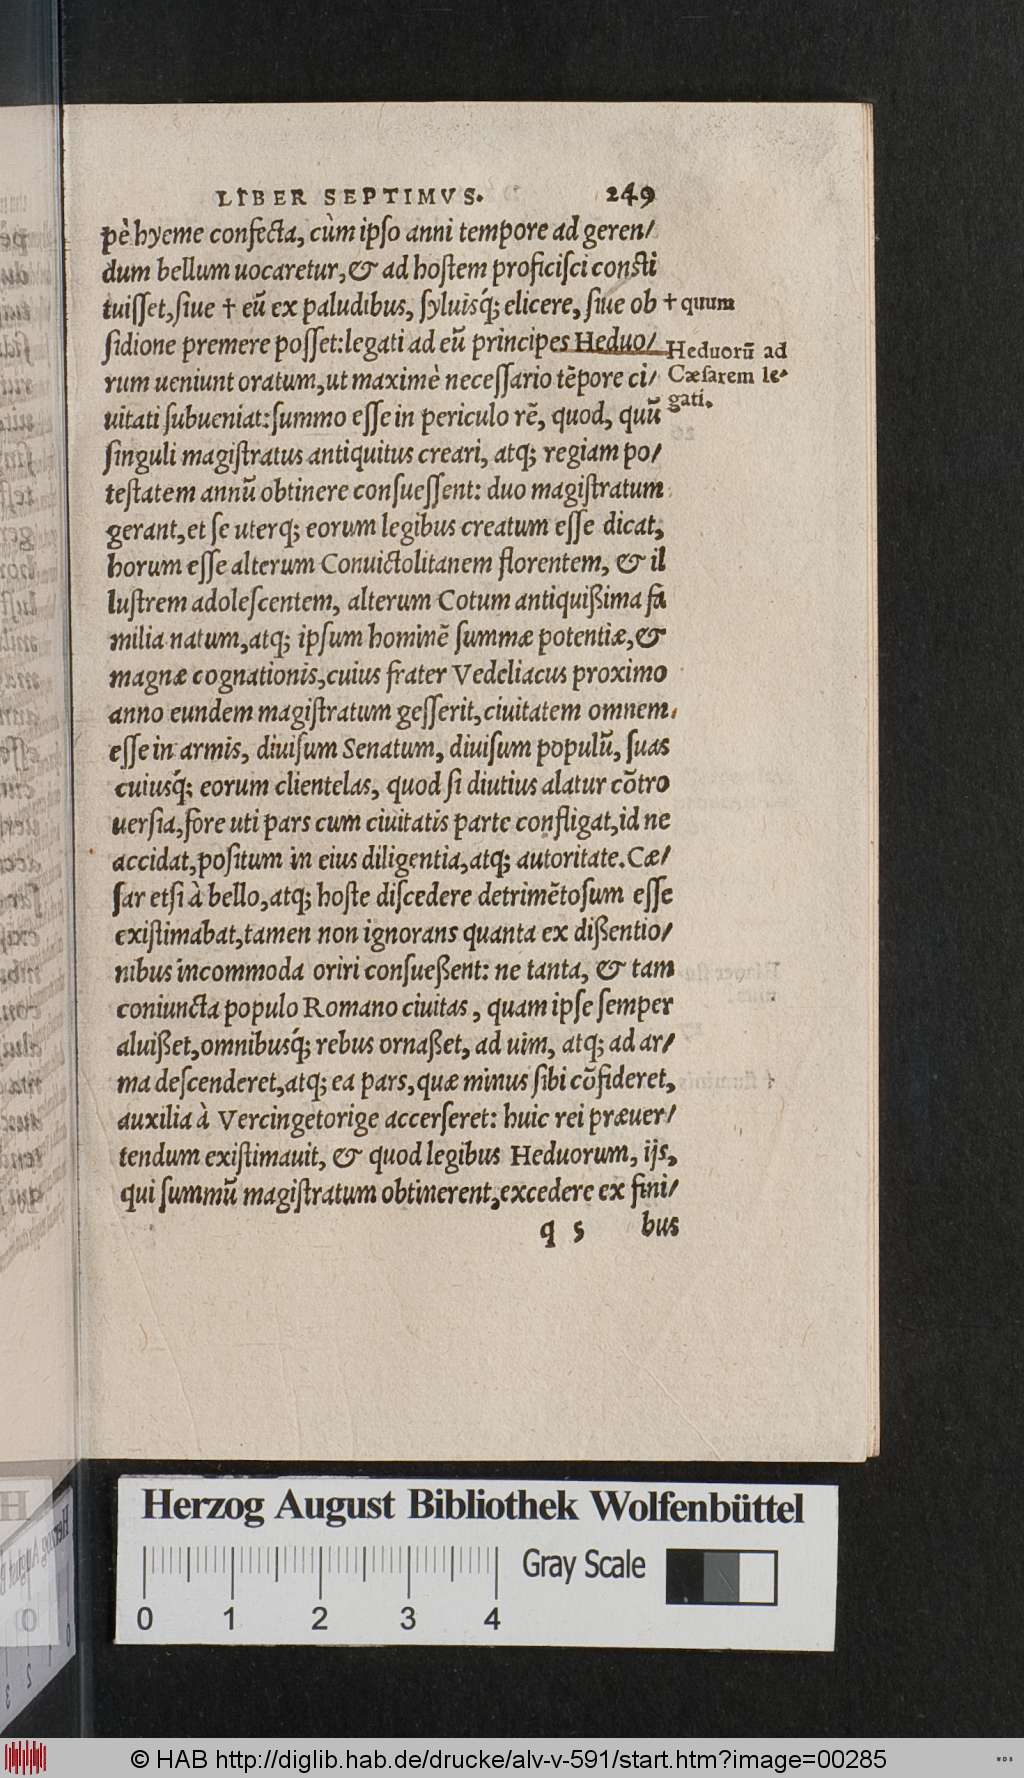 LIBER SEPTIMVS. 249
pè hyeme confecta, cùm ipſo anni tempore ad geren/
dum bellum uocaretur, & ad hoſtem proficiſci conſti
tuiſſet, ſiue † eũ ex paludibus, ſyluisq́; elicere, ſiue ob
† quum
ſidione premere poſſet: legati ad eũ principes Heduo/
rum ueniunt oratum, ut maximè neceſſario tẽpore ci/
uitati ſubueniat: ſummo eſſe in periculo rẽ, quod, quũ
Heduorũ ad
Cæſarem le-
gati.
ſinguli magiſtratus antiquitus creari, atq; regiam po/
teſtatem annũ obtinere conſueſſent: duo magiſtratum
gerant, et ſe uterq; eorum legibus creatum eſſe dicat,
horum eſſe alterum Conuictolitanem florentem, & il
luſtrem adoleſcentem, alterum Cotum antiquißima fa
milia natum, atq; ipſum hominẽ ſummæ potentiæ, &
magnæ cognationis, cuius frater Vedeliacus proximo
anno eundem magiſtratum geſſerit, ciuitatem omnem
eſſe in armis, diuiſum Senatum, diuiſum populũ, ſuas
cuiusq́; eorum clientelas, quod ſi diutius alatur cõtro
uerſia, fore uti pars cum ciuitatis parte confligat, id ne
accidat, poſitum in eius diligentia, atq; autoritate. Cæ/
ſar etſi à bello, atq; hoſte diſcedere detrimẽtoſum eſſe
exiſtimabat, tamen non ignorans quanta ex dißentio/
nibus incommoda oriri conſueßent: ne tanta, & tam
coniuncta populo Romano ciuitas, quam ipſe ſemper
aluißet, omnibusq́; rebus ornaßet, ad uim, atq; ad ar/
ma deſcenderet, atq; ea pars, quæ minus ſibi cõfideret,
auxilia à Vercingetorige accerſeret: huic rei præuer/
tendum exiſtimauit, & quod legibus Heduorum, ijs,
qui ſummũ magiſtratum obtinerent, excedere ex fini/
q 5 bus
Herzog August Bibliothek Wolfenbüttel
Gray Scale
0 1 2 3 4
© HAB http://diglib.hab.de/drucke/alv-v-591/start.htm?image=00285